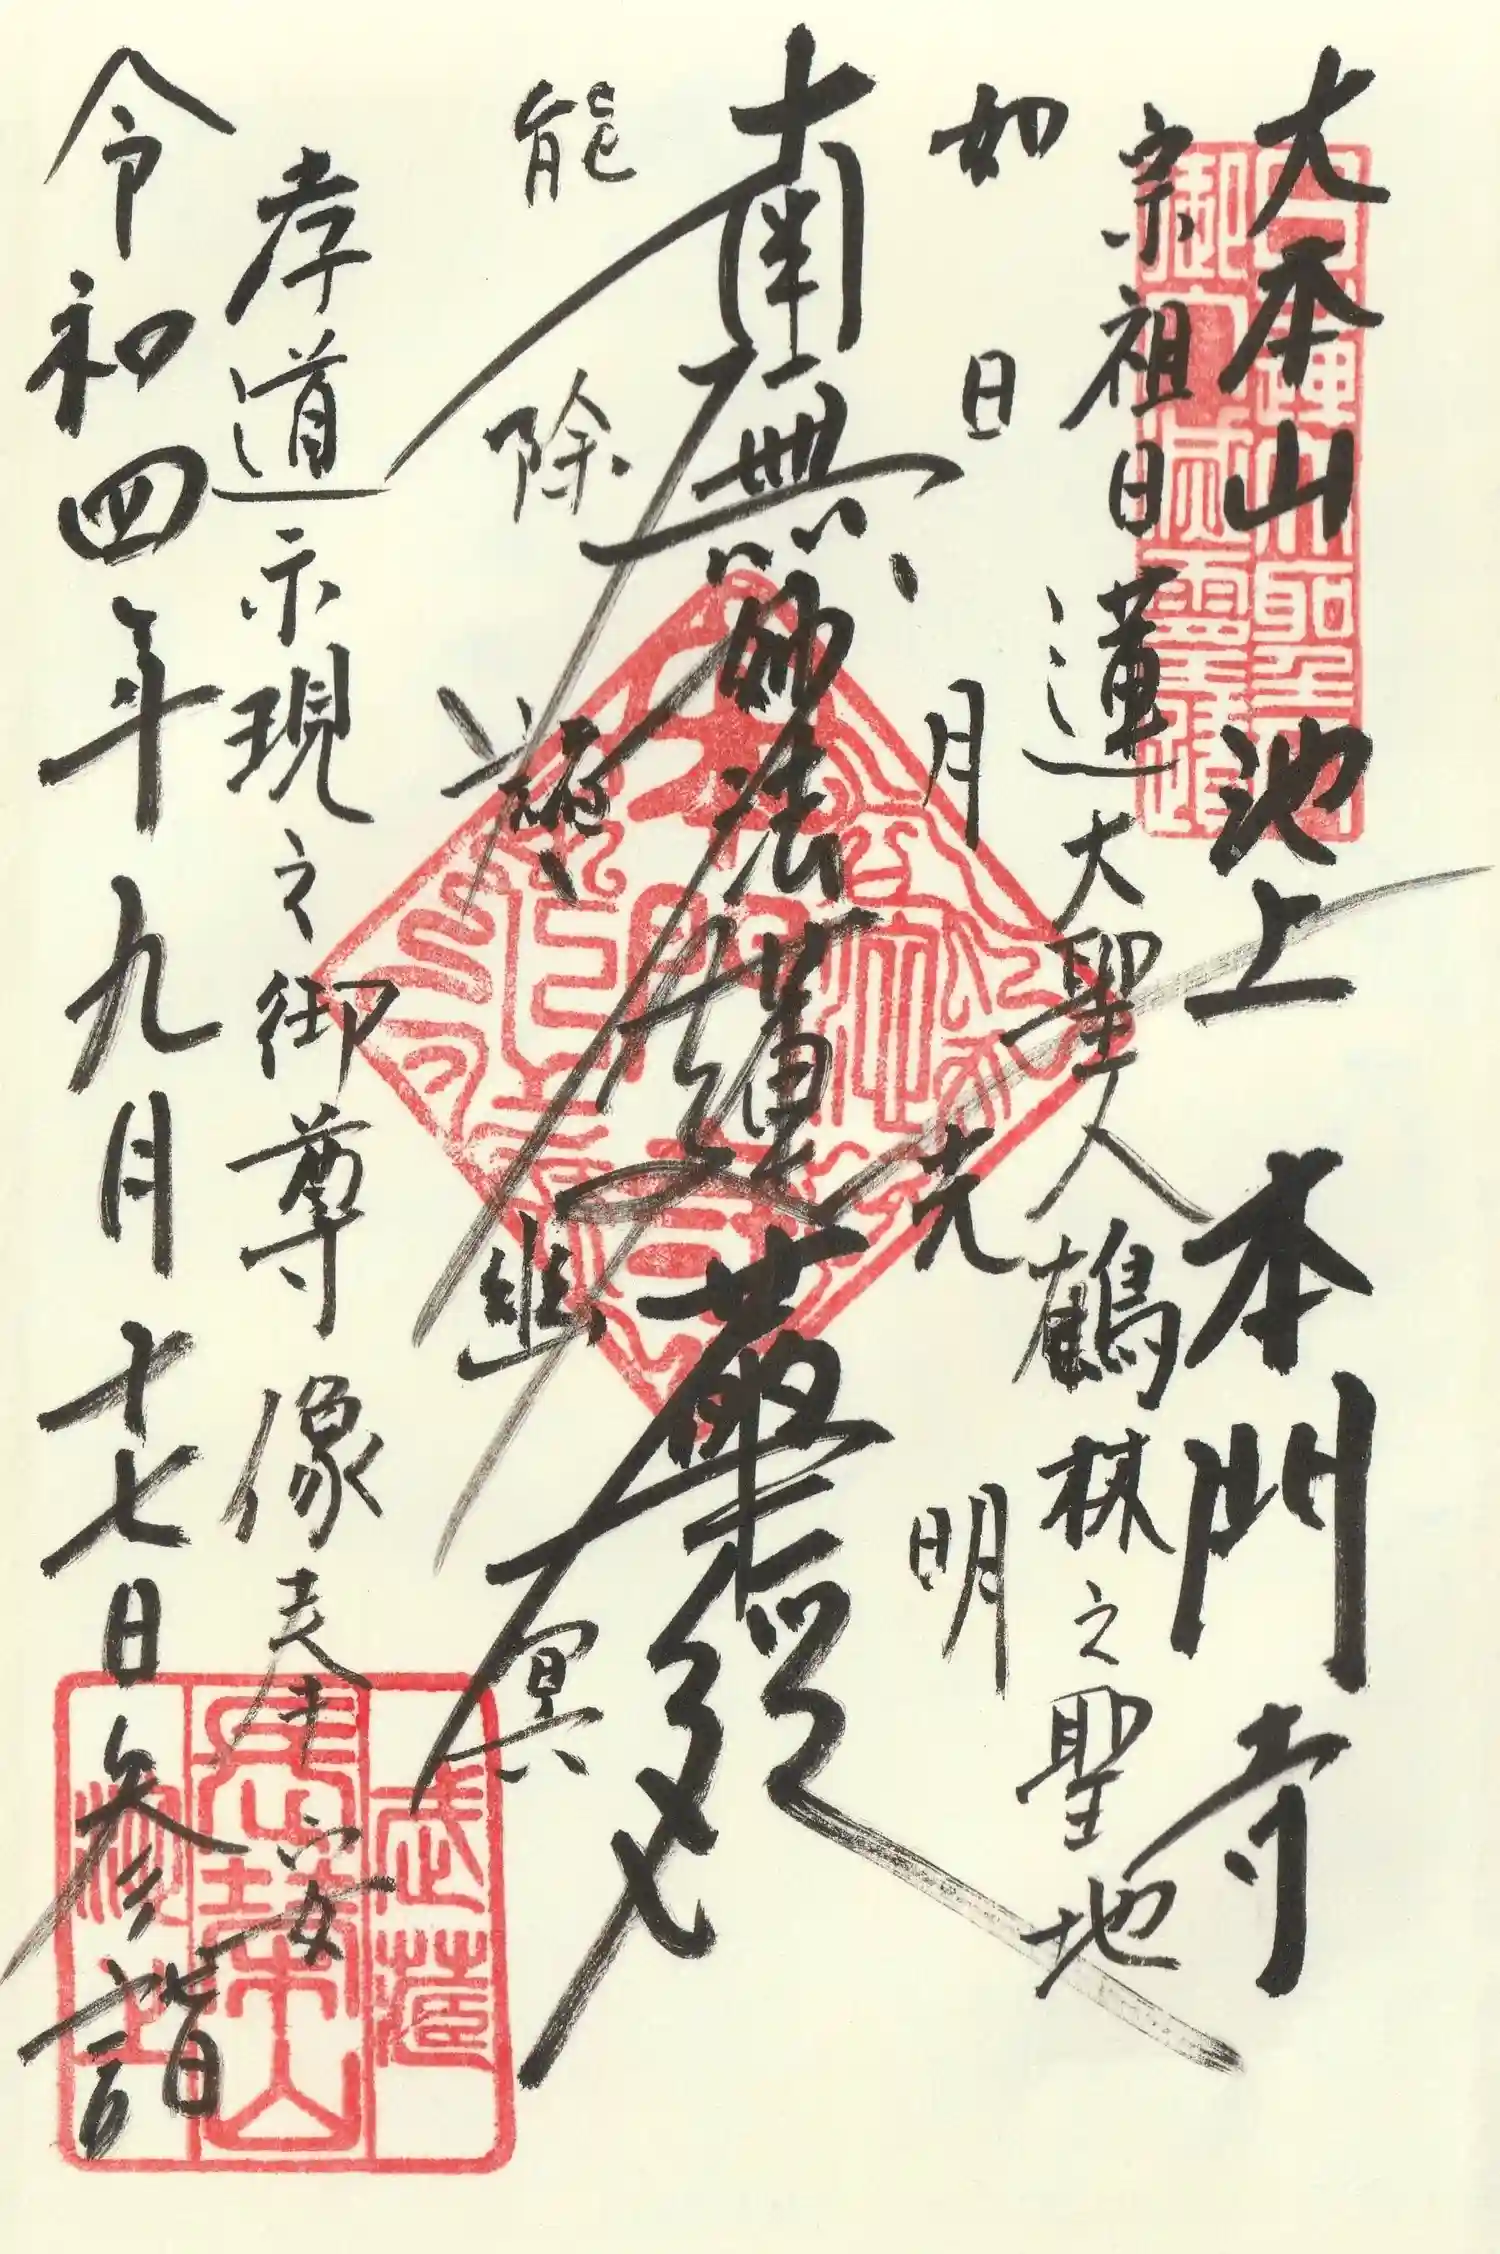 大本山 池上 本門寺
宗祖日蓮大聖人鶴林之聖地
如日月光明
南無妙法蓮華経
能除諸幽冥
孝道示現之御尊像奉安
令和四年九月十七日参詣
武蔵
長栄山
池上